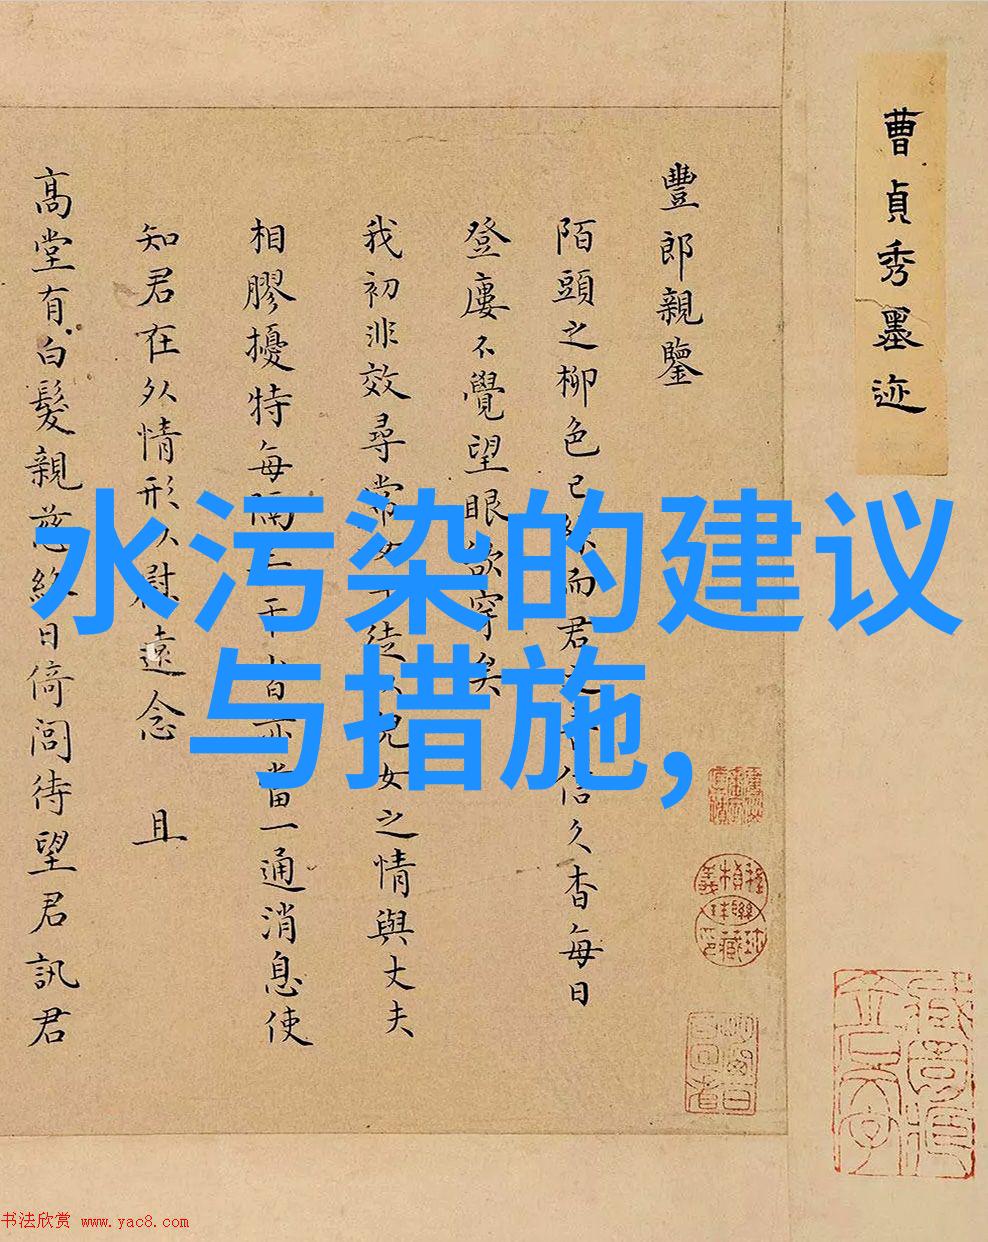 曹貞秀墨迹
豐郎親鑒
陌頭之柳色已而君之信久杳每日
登廔不覺望眼欲穿矣
我初非效尋常兒女之情與丈夫
相膠擾特每隔一通消息使
知君在外情形以慰遠念 且
高堂有白髮親慈終日倚閭待望君訊君
水污染的建议
与措施,
书法欣赏 www.yac8.com